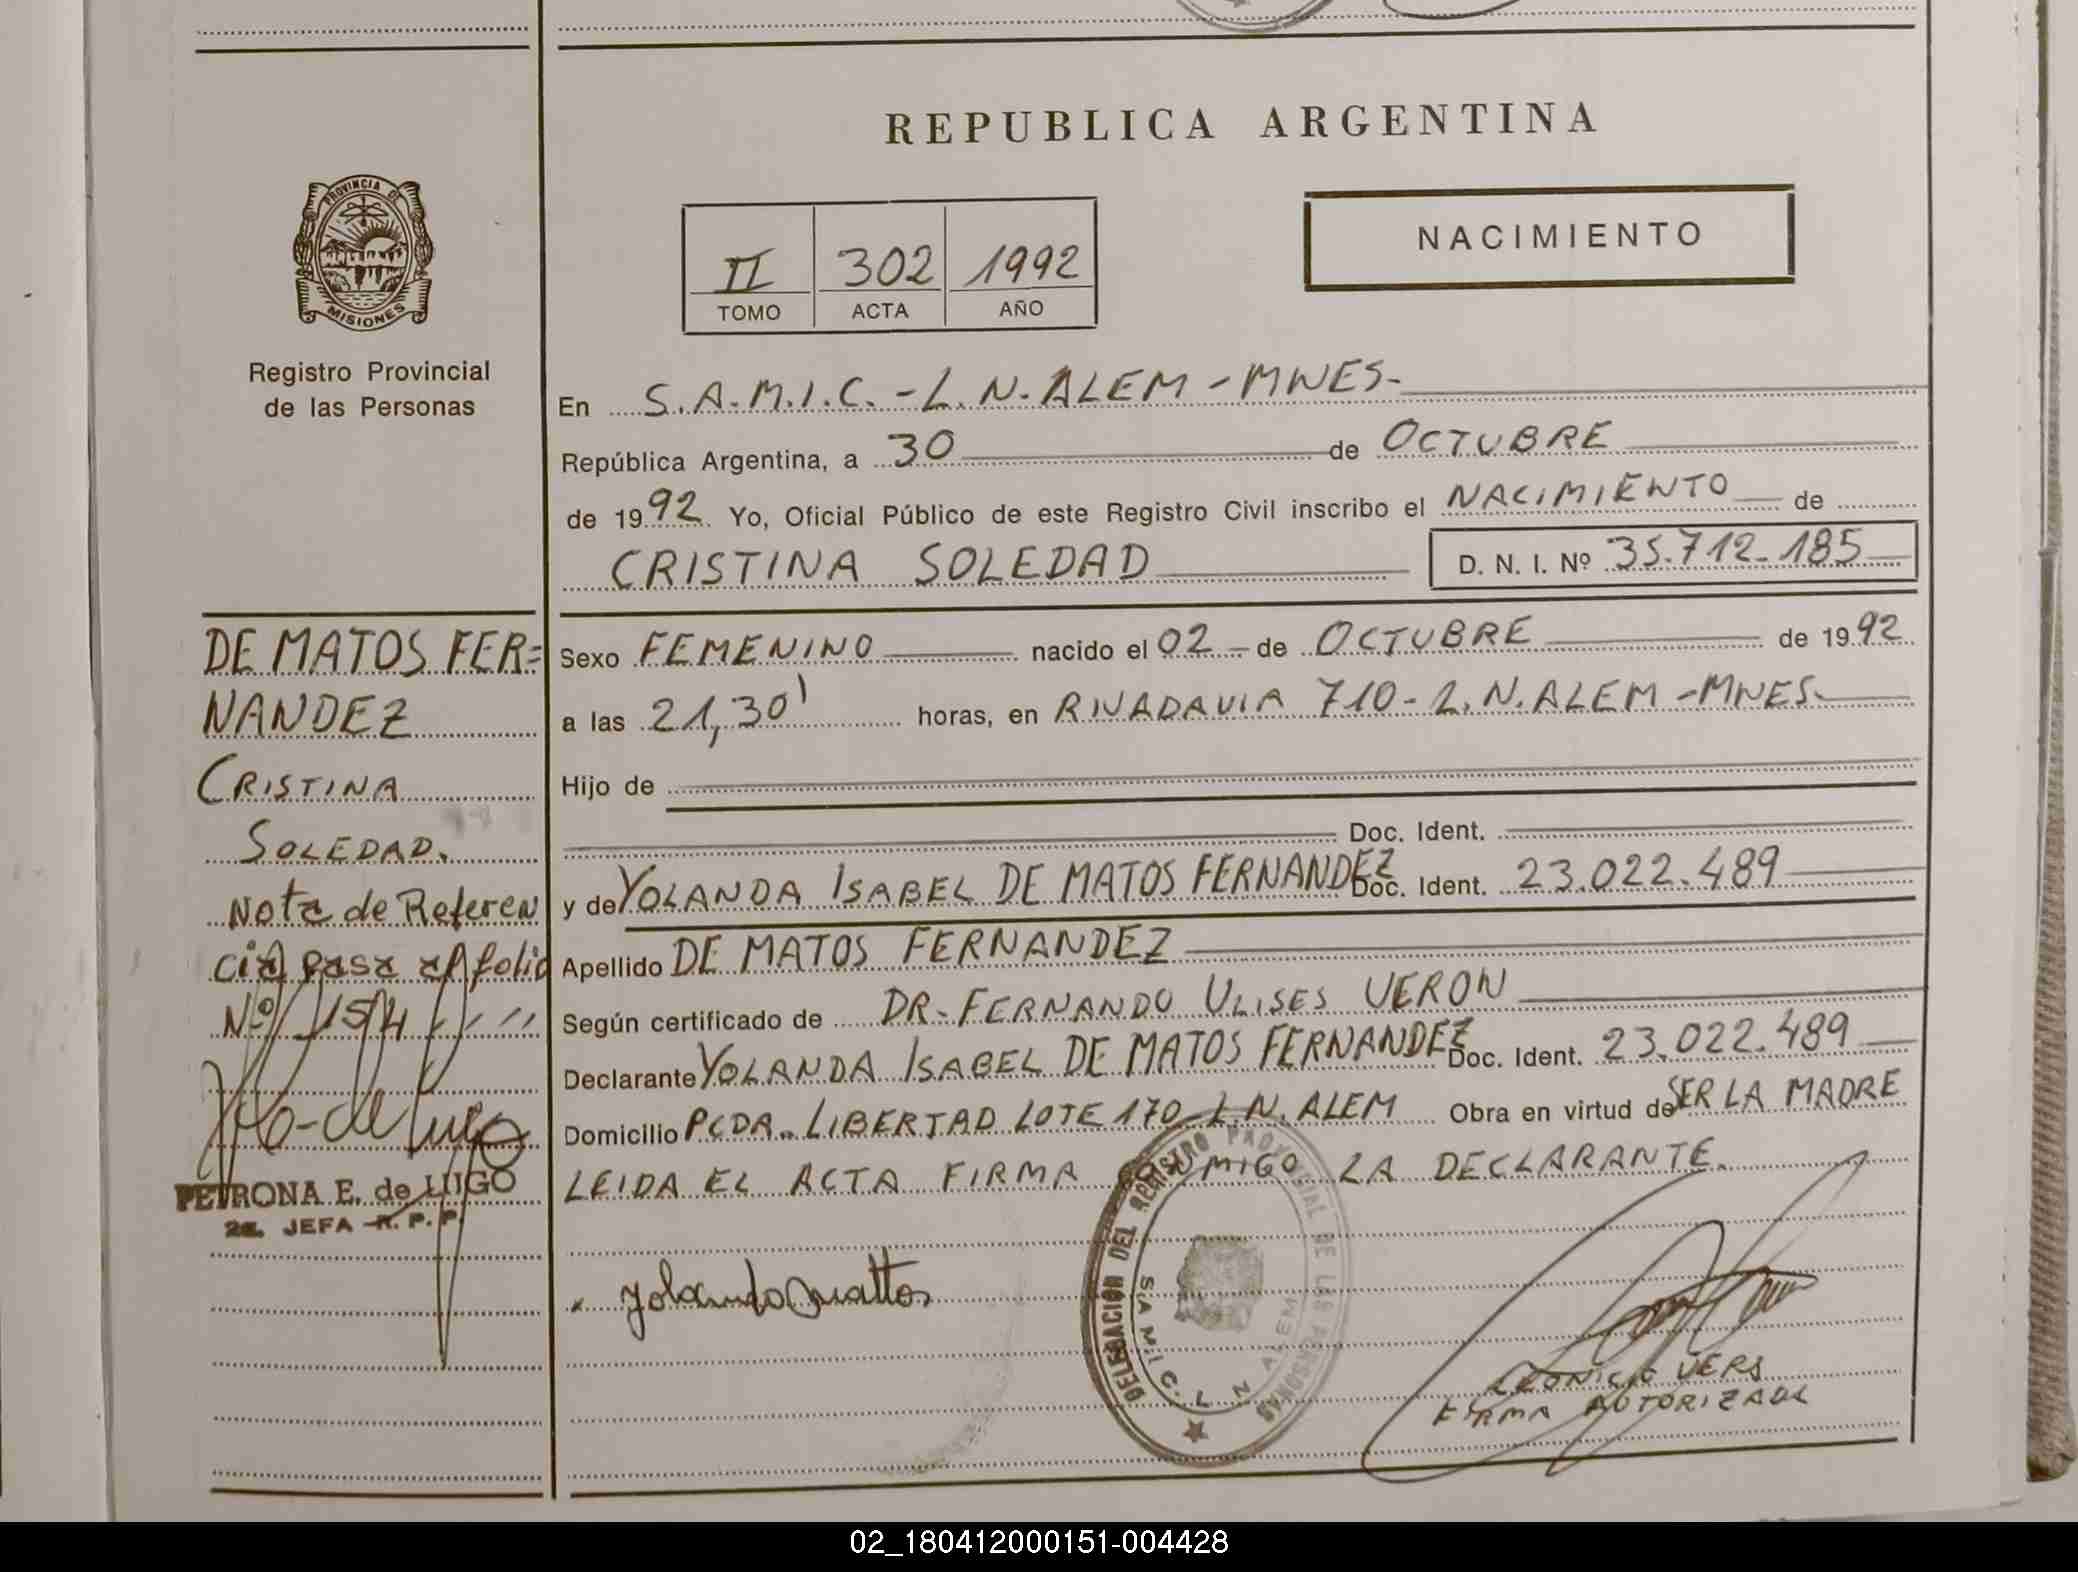 REPUBLICA ARGENTINA
PROVINCIA DE
MISIONES
Registro Provincial
de las Personas
II 302 1992
TOMO ACTA AÑO
NACIMIENTO
En S.A.M.I.C.-L.N.ALEM-MNES-
República Argentina, a 30 de OCTUBRE
de 1992 Yo, Oficial Público de este Registro Civil inscribo el NACIMIENTO de
CRISTINA SOLEDAD D. N. I. Nº 35.712.185
DE MATOS FER=
NANDEZ
CRISTINA
SOLEDAD.
Nota de Referen
cia pasa al folio
Nº 154
PETRONA E. de LUGO
2a. JEFA R. P. P.
Sexo FEMENINO nacido el 02 de OCTUBRE de 1992
a las 21,30' horas, en RIVADAVIA 710-L.N.ALEM-MNES-
Hijo de
Doc. Ident.
y de YOLANDA ISABEL DE MATOS FERNANDEZ Doc. Ident. 23.022.489
Apellido DE MATOS FERNANDEZ
Según certificado de DR. FERNANDO ULISES VERON
Declarante YOLANDA ISABEL DE MATOS FERNANDEZ Doc. Ident. 23.022.489
Domicilio PCDA. LIBERTAD LOTE 170-L.N.ALEM Obra en virtud de SER LA MADRE
LEIDA EL ACTA FIRMA CONMIGO LA DECLARANTE.
DELEGACION DEL REGISTRO PROVINCIAL DE LAS PERSONAS
S.A.M.I.C. L N ALEM
FIRMA AUTORIZADA
02_180412000151-004428